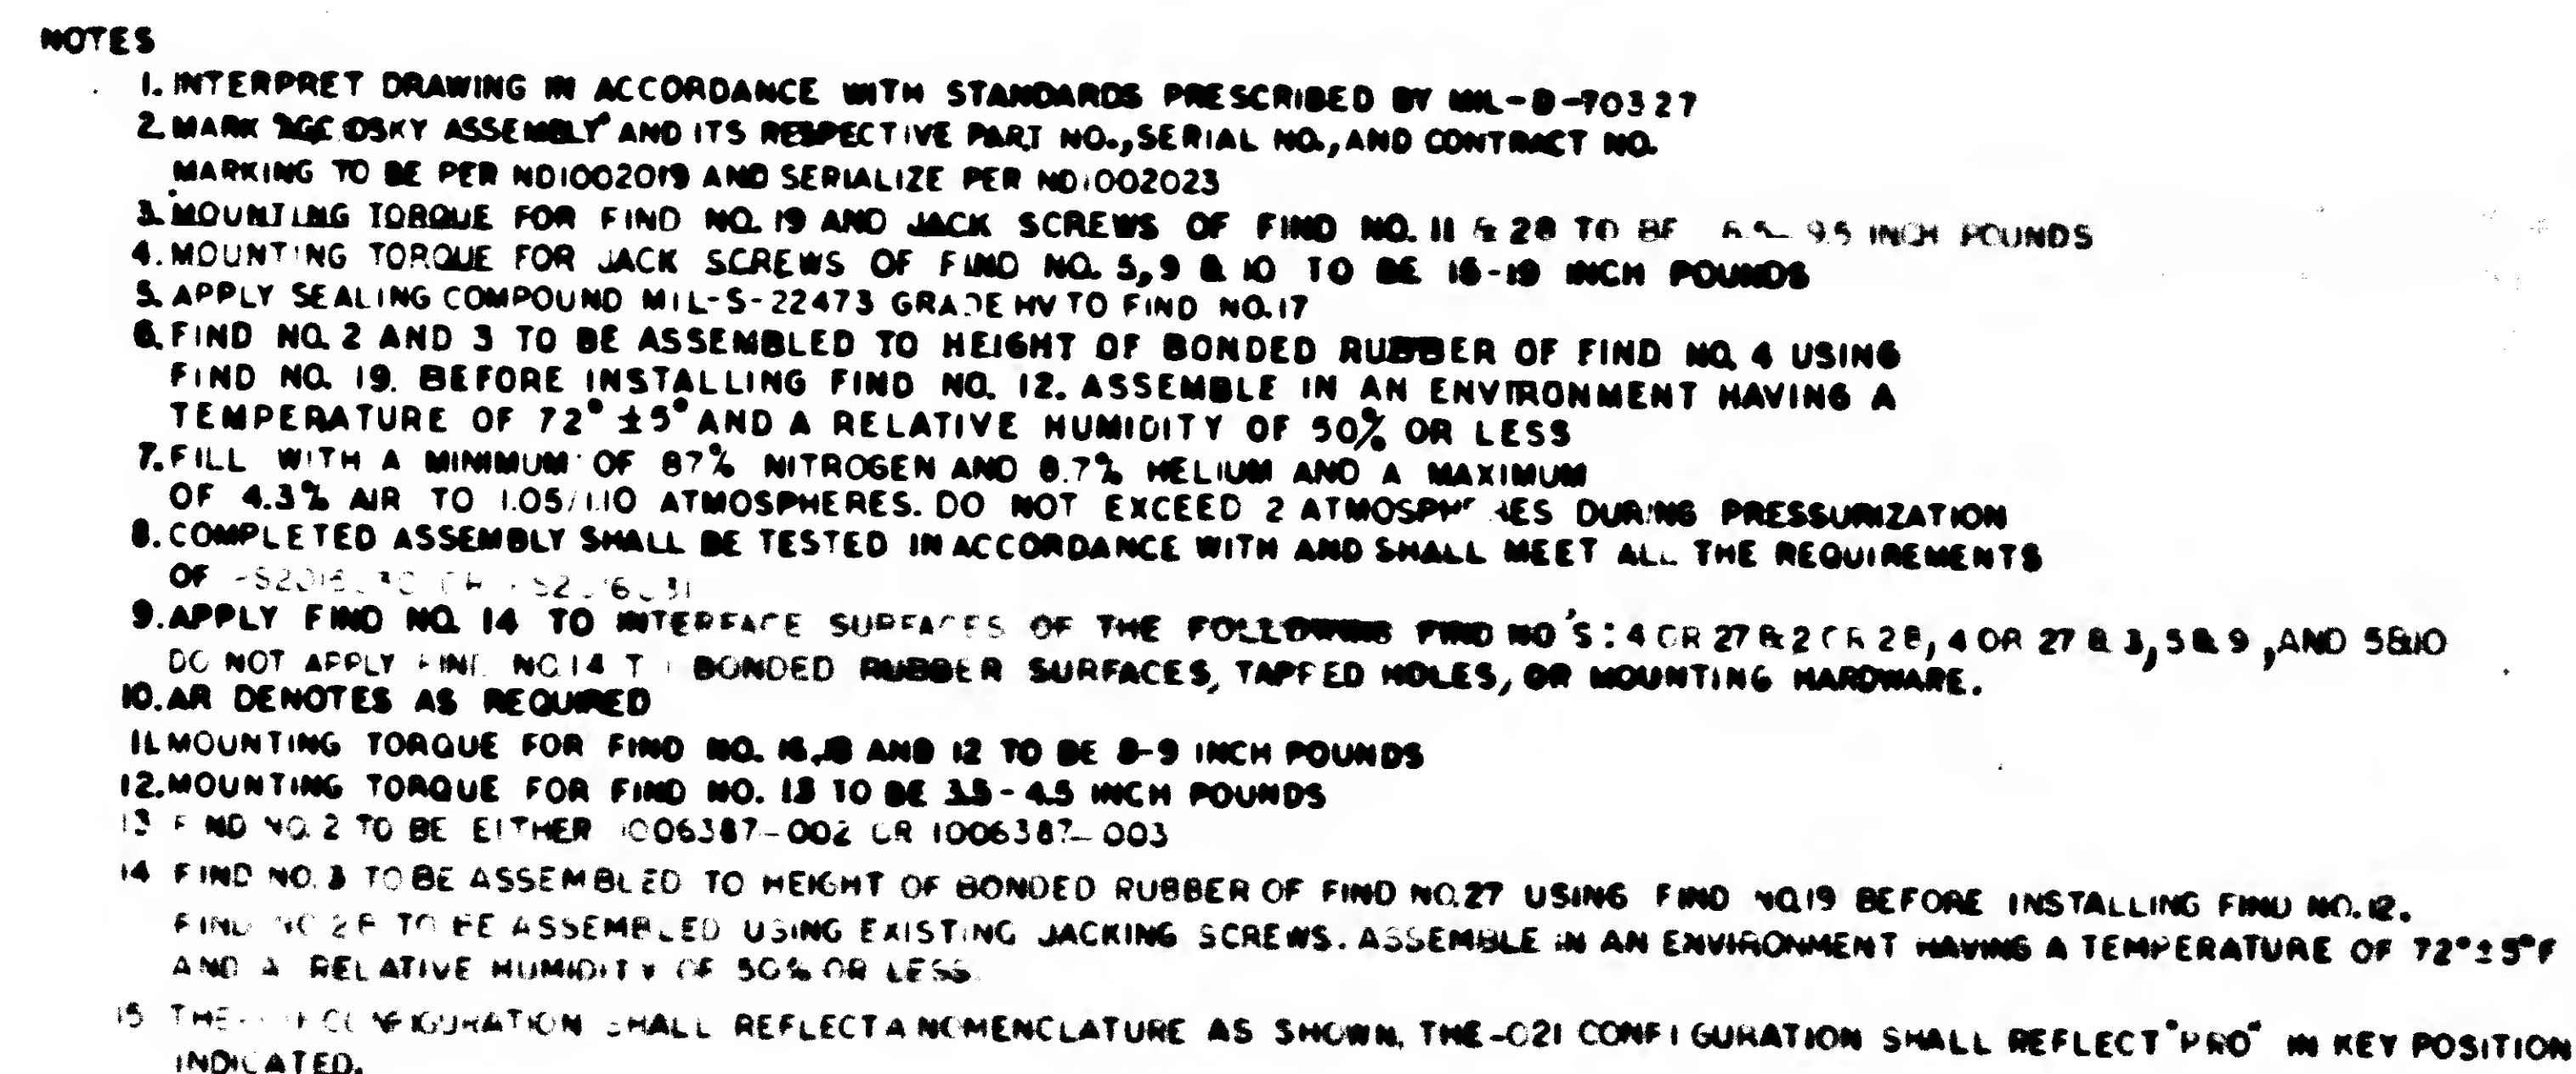 NOTES
1. INTERPRET DRAWING IN ACCORDANCE WITH STANDARDS PRESCRIBED BY MIL-D-70327
2. MARK "AGC DSKY ASSEMBLY" AND ITS RESPECTIVE PART NO., SERIAL NO., AND CONTRACT NO.
MARKING TO BE PER ND1002019 AND SERIALIZE PER ND1002023
3. MOUNTING TORQUE FOR FIND NO. 19 AND JACK SCREWS OF FIND NO. 11 & 28 TO BE 9.5 INCH POUNDS
4. MOUNTING TORQUE FOR JACK SCREWS OF FIND NO. 5, 9 & 10 TO BE 16-19 INCH POUNDS
5. APPLY SEALING COMPOUND MIL-S-22473 GRADE HV TO FIND NO. 17
6. FIND NO. 2 AND 3 TO BE ASSEMBLED TO HEIGHT OF BONDED RUBBER OF FIND NO. 4 USING
FIND NO. 19. BEFORE INSTALLING FIND NO. 12. ASSEMBLE IN AN ENVIRONMENT HAVING A
TEMPERATURE OF 72° ±5° AND A RELATIVE HUMIDITY OF 50% OR LESS
7. FILL WITH A MINIMUM OF 87% NITROGEN AND 8.7% HELIUM AND A MAXIMUM
OF 4.3% AIR TO 1.05/1.10 ATMOSPHERES. DO NOT EXCEED 2 ATMOSPHERES DURING PRESSURIZATION
8. COMPLETED ASSEMBLY SHALL BE TESTED IN ACCORDANCE WITH AND SHALL MEET ALL THE REQUIREMENTS
OF
9. APPLY FIND NO. 14 TO INTERFACE SURFACES OF THE FOLLOWING FIND NO'S: 4 OR 27 & 2 OR 28, 4 OR 27 & 3, 5 & 9, AND 5&10
DO NOT APPLY FIND NO. 14 TO BONDED RUBBER SURFACES, TAPPED HOLES, OR MOUNTING HARDWARE.
10. AR DENOTES AS REQUIRED
11. MOUNTING TORQUE FOR FIND NO. 16, 18 AND 12 TO BE 8-9 INCH POUNDS
12. MOUNTING TORQUE FOR FIND NO. 13 TO BE 3.5-4.5 INCH POUNDS
13 FIND NO. 2 TO BE EITHER 1006387-002 OR 1006387-003
14 FIND NO. 3 TO BE ASSEMBLED TO HEIGHT OF BONDED RUBBER OF FIND NO. 27 USING FIND NO. 19 BEFORE INSTALLING FIND NO. 12.
FIND NO 28 TO BE ASSEMBLED USING EXISTING JACKING SCREWS. ASSEMBLE IN AN ENVIRONMENT HAVING A TEMPERATURE OF 72° ± 5°F
AND A RELATIVE HUMIDITY OF 50% OR LESS.
15 THE CONFIGURATION SHALL REFLECT A NOMENCLATURE AS SHOWN. THE -021 CONFIGURATION SHALL REFLECT "PRO" IN KEY POSITION
INDICATED.